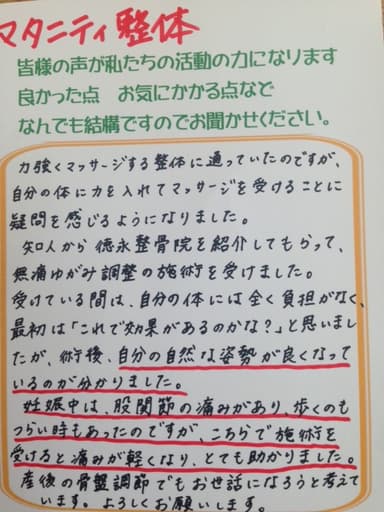 マタニティ整体
皆様の声が私たちの活動の力になります
良かった点　お気にかかる点など
なんでも結構ですのでお聞かせください。
力強くマッサージする整体に通っていたのですが、
自分の体に力を入れてマッサージを受けることに
疑問を感じるようになりました。
知人から徳永整骨院を紹介してもらって、
無痛ゆがみ調整の施術を受けました。
受けている間は、自分の体には全く負担がなく、
最初は「これで効果があるのかな?」と思いまし
たが、術後、自分の自然な姿勢が良くなって
いるのが分かりました。
妊娠中は、股関節の痛みがあり、歩くのも
つらい時もあったのですが、こちらで施術を
受けると痛みが軽くなり、とても助かりました。
産後の骨盤調節でもお世話になろうと考えて
います。よろしくお願いします。